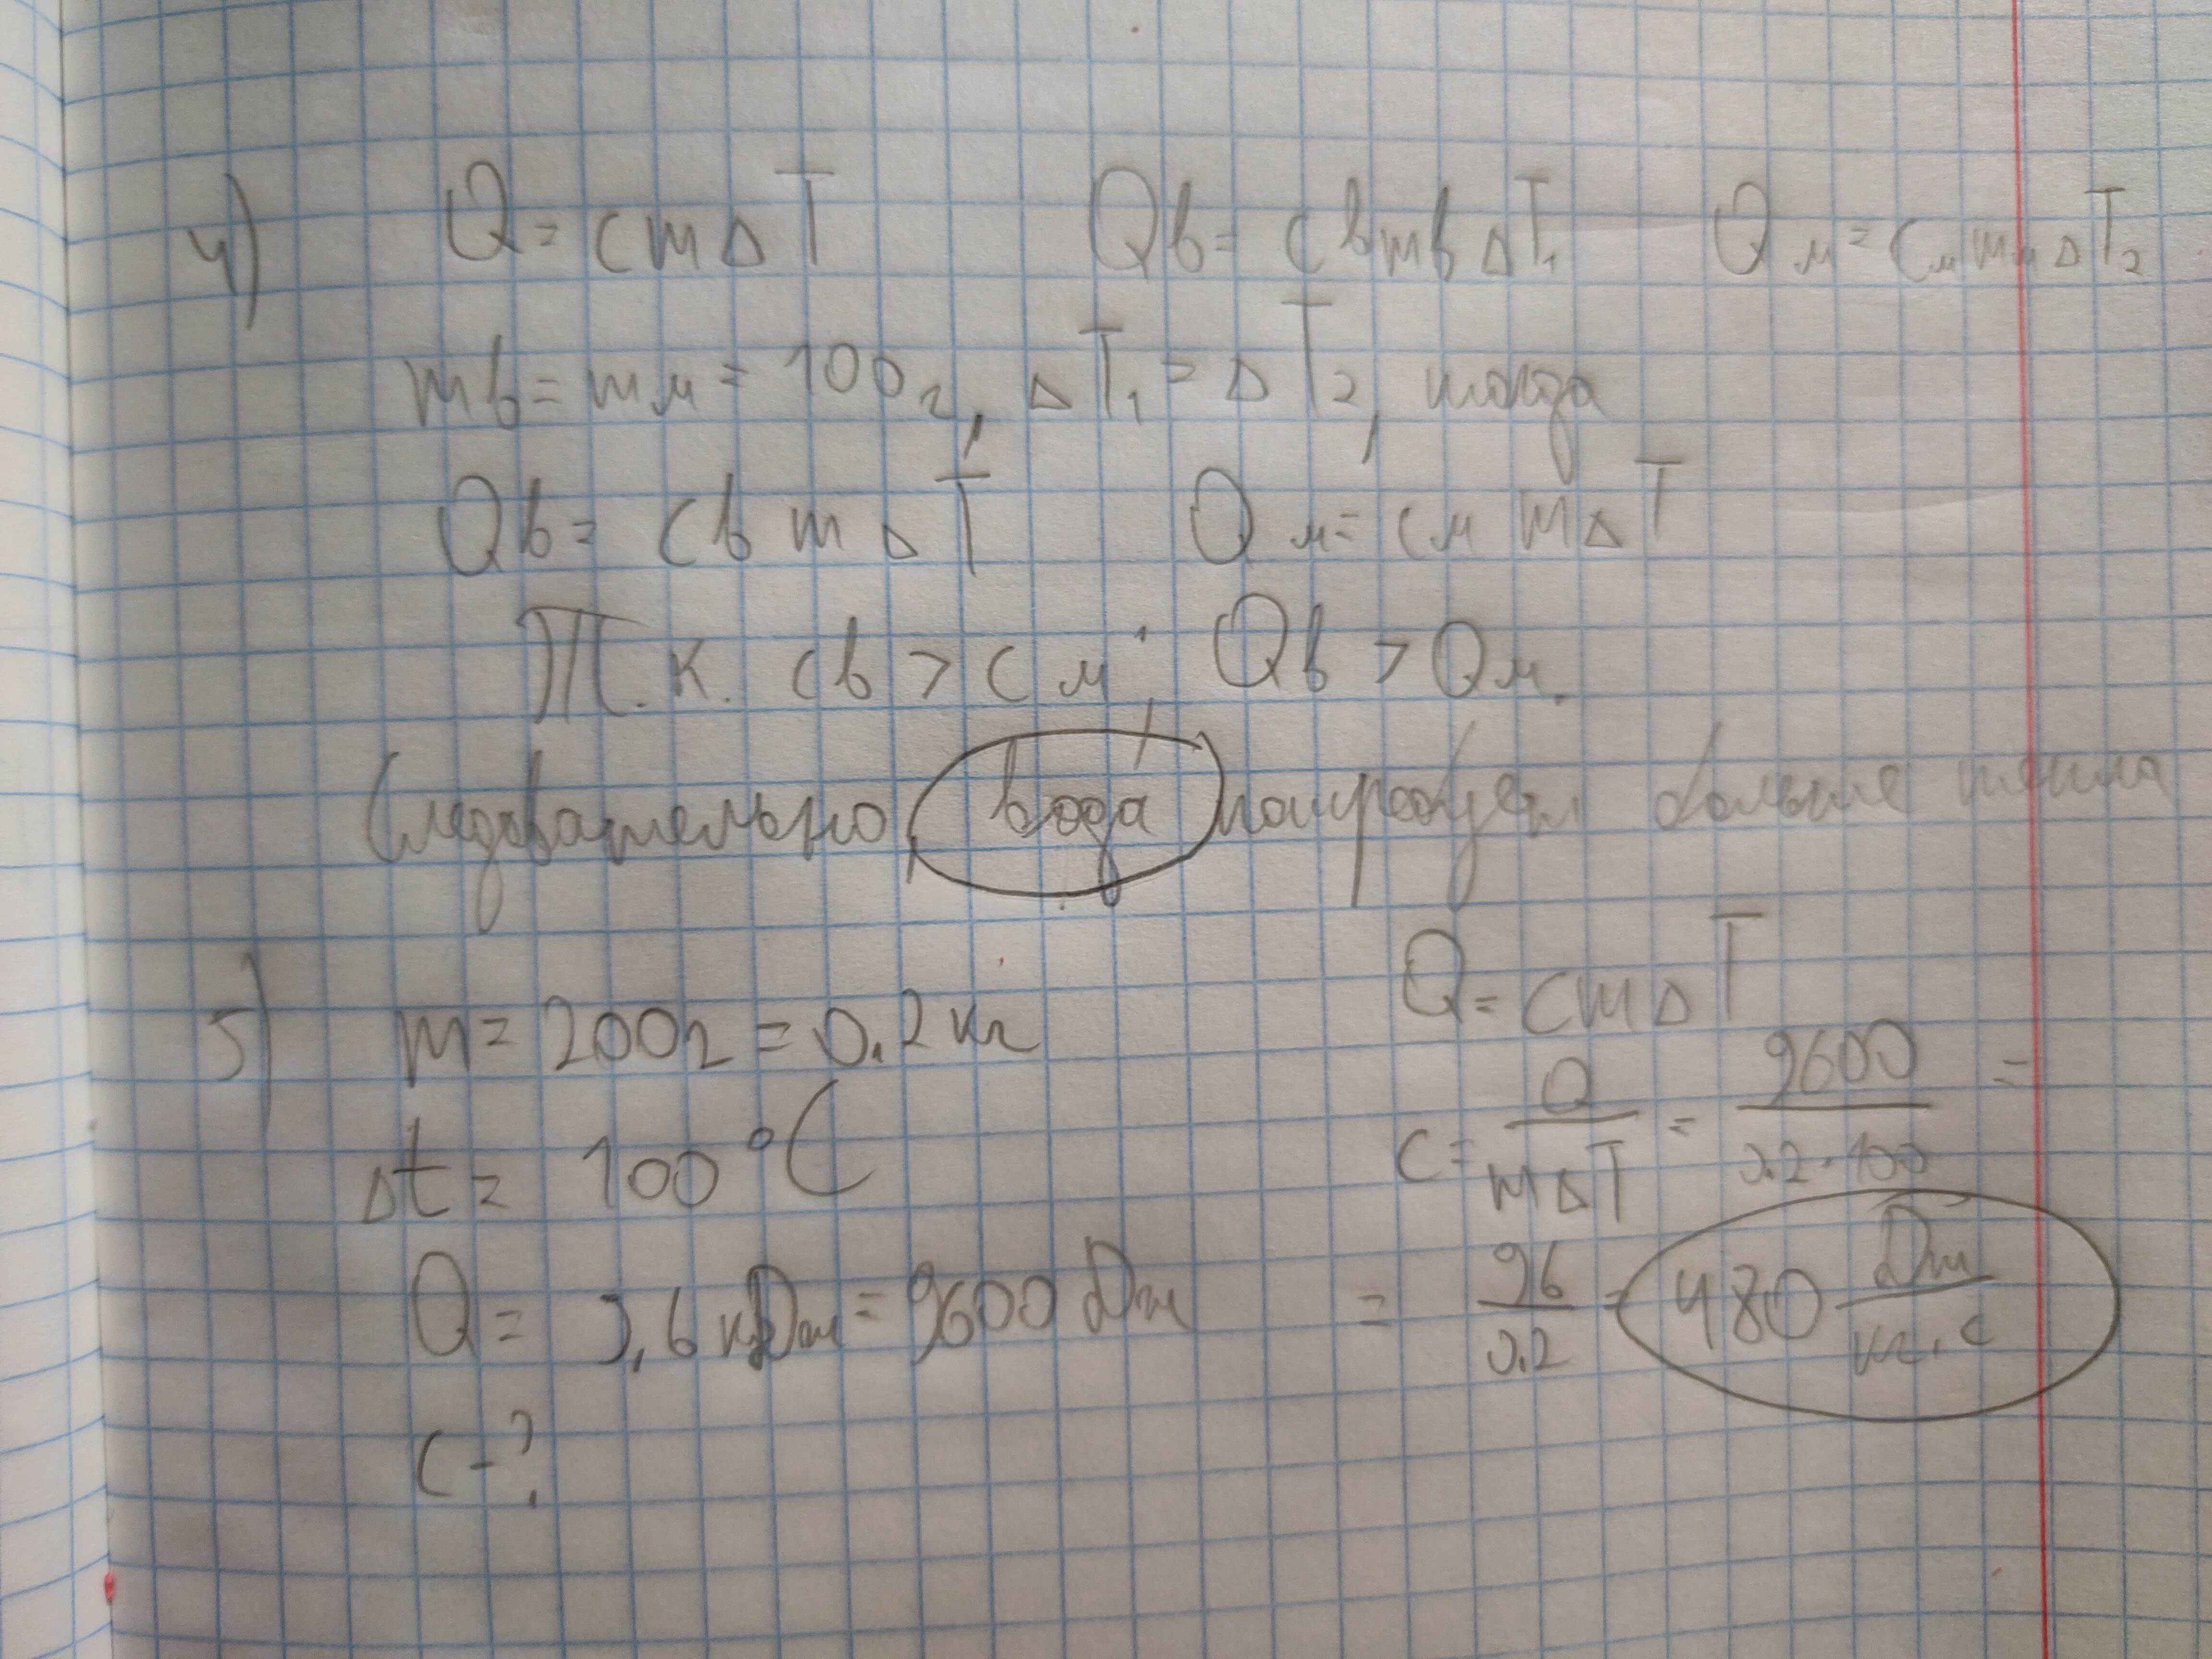 4) Q = cmΔT Qв = cвmвΔT₁ Qм = cмmмΔT₂
mв = mм = 100г, ΔT₁ = ΔT₂, тогда
Qв = cв m ΔT Qм = cм m ΔT
Т.к. cв > cм, Qв > Qм.
Следовательно, вода потребует больше тепла
5) m = 200г = 0.2 кг
Δt = 100°C
Q = 9,6 кДж = 9600 Дж
c - ?
Q = cmΔT
c = Q/mΔT = 9600/0.2·100 =
= 96/0.2 = 480 Дж/кг·c